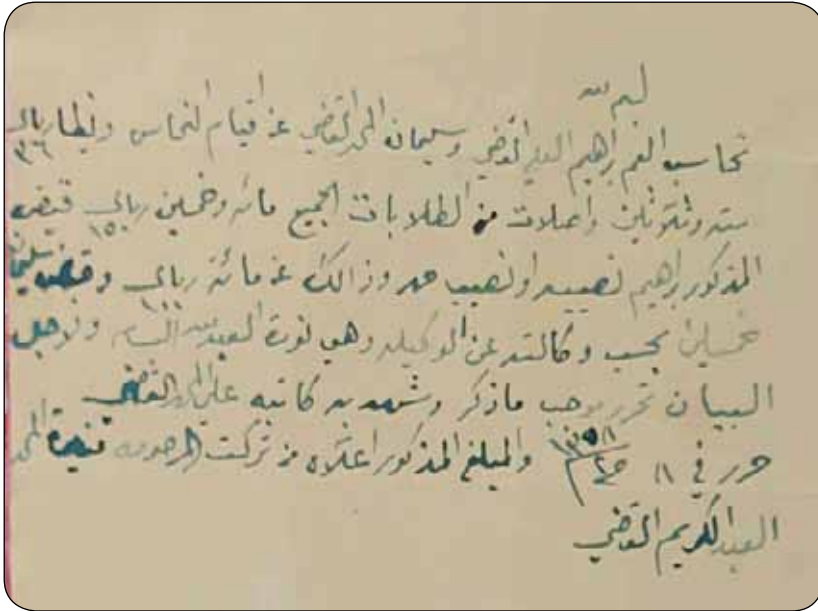 لبم لله
تحاسب العم براهيم العلي القاضي وسليمان المحمد القاضي عن اقيام النحاس
سته وثلاثين ٣٦ واصلات من الطلابات الجميع مائه وخمسين ريال ١٥٠ قبض
المذكور براهيم نصيبه اونصيب وذالك عن مائة ريال ١٠٠ وقبض سليمان
خمسين بحسب وكالته عن الوكيله وهي نورة العبدالله ولاجل
البيان تحرر موجب ماذكر وشهد به كاتبه علي المحمد القاضي
حرر في ١١ ١٣٥٨ والمبلغ المذكور اعلاه من تركت المرحومه المحمد
العبدالكريم القاضي